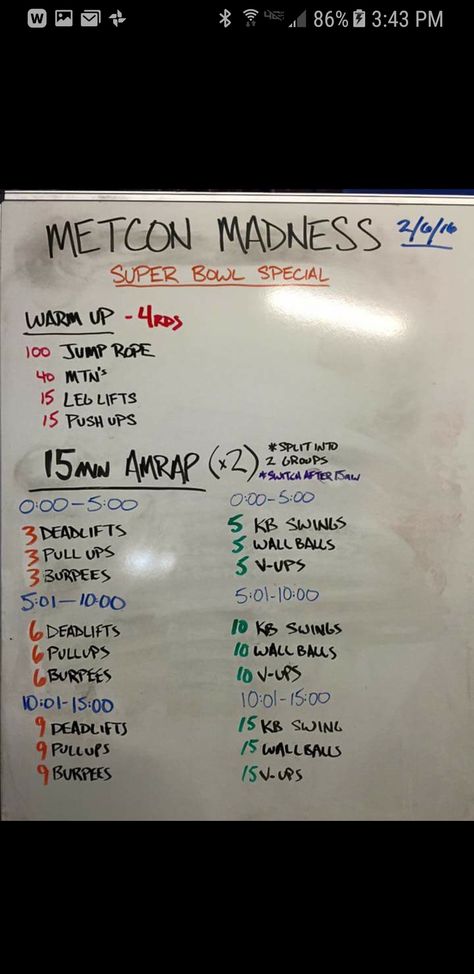 86% 3:43 PM
METCON MADNESS 2/6/16
SUPER BOWL SPECIAL
WARM UP - 4 RDS
100 JUMP ROPE
40 MTN's
15 LEG LIFTS
15 PUSH UPS
15 MIN AMRAP (x2)
*SPLIT INTO
2 GROUPS
*SWITCH AFTER 15 MIN
0:00-5:00
3 DEADLIFTS
3 PULL UPS
3 BURPEES
5:01-10:00
6 DEADLIFTS
6 PULLUPS
6 BURPEES
10:01-15:00
9 DEADLIFTS
9 PULLUPS
9 BURPEES
0:00-5:00
5 KB SWINGS
5 WALL BALLS
5 V-UPS
5:01-10:00
10 KB SWINGS
10 WALL BALLS
10 V-UPS
10:01-15:00
15 KB SWING
15 WALL BALLS
15 V-UPS